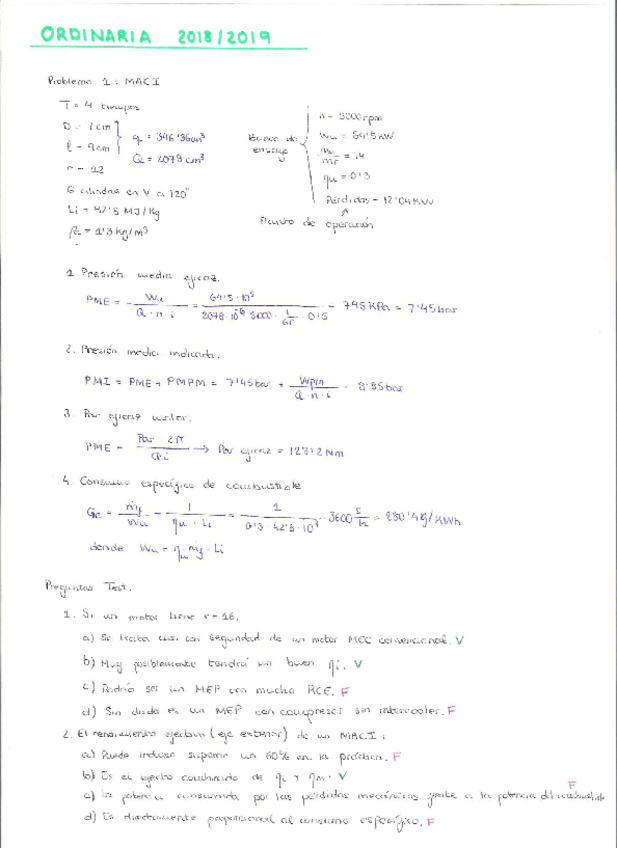 ORDINARIA 2018/2019
Problema 1: MACI
T = 4 tiempos
D = 7cm
l = 9cm
q = 346'36cm³
Q = 2078 cm³
r = 12
6 cilindros en V a 120°
Li = 42'5 MJ/Kg
ρa = 1'3 Kg/m³
Banco de ensayo
n = 3000rpm
Ẇu = 64'5kW
ηu = 0'3
Pérdidas = 12'04KW
Punto de operación
1. Presión media eficaz.
PME = Ẇu / Q · n · i = 64'5 · 10³ / 2078 · 10⁻⁶ 3000 · 1/60 · 0'5 = 745 KPa = 7'45bar
2. Presión media indicada.
PMI = PME + PMPM = 7'45bar + Ẇpm / Q · n · i = 8'95bar
3. Par eficaz motor.
PME = Par 2π / Q·i → Par eficaz = 123'2 Nm
4. Consumo específico de combustible
Ge = ṁf / Ẇu = 1 / ηu · Li = 1 / 0'3 · 42'8 · 10³ · 3600 s/h = 280'4g/KWh
donde Ẇu = ηu ṁf · Li
Preguntas Test.
1. Si un motor tiene r = 16.
a) Se trata casi con seguridad de un motor MEC convencional. V
b) Muy posiblemente tendrá un buen ηi. V
c) Podría ser un MEP con mucha RCE. F
d) Sin duda es un MEP con compresor sin intercooler. F
2. El rendimiento efectivo (eje exterior) de un MACI:
a) Puede incluso superar un 60% en la práctica. F
b) Es el efecto combinado de ηi y ηm. V
c) La potencia consumida por las pérdidas mecánicas frente a la potencia del combustible F
d) Es directamente proporcional al consumo específico. F